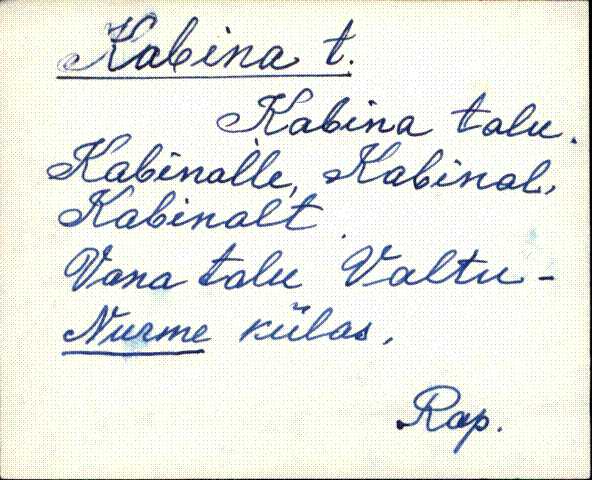 Kabina t.
Kabina talu.
Kabinalle, Kabinal,
Kabinalt.
Vana talu Valtu-
Nurme külas.
Rap.